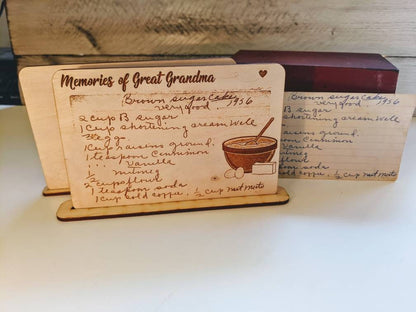 Memories of Great Grandma
Brown sugar Cake
very good 1956
2 cup B sugar
1 Cup shortening cream well
2 Eggs
1 Cup raisins ground.
1 teaspoon Cinnamon
" " Vanilla
½ nutmeg
2 cups flour
1 teaspoon soda
1 Cup cold coffee, ½ cup nut meats
Brown sugar Cake
very good 1956
B sugar
shortening cream well
raisins ground.
Cinnamon
Vanilla
nutmeg
flour
soda
cold coffee, ½ cup nut meats